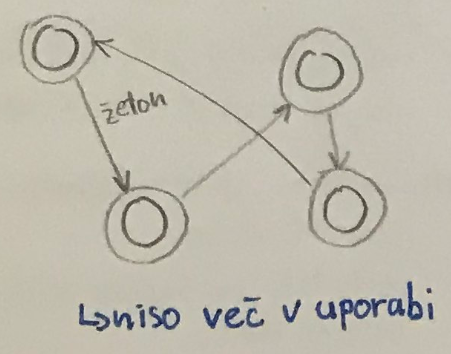 žeton
↳niso več v uporabi